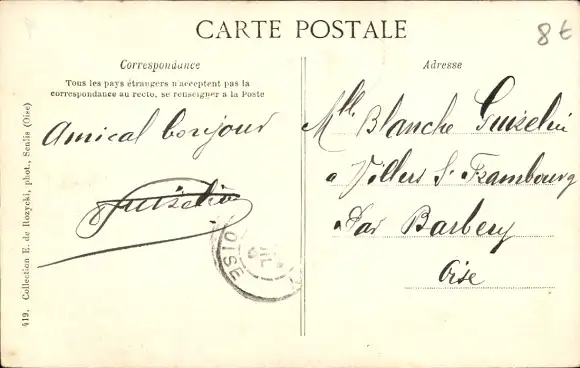 CARTE POSTALE
8€
Correspondance
Tous les pays étrangers n'acceptent pas la
correspondance au recto, se renseigner à la Poste
Amical bonjour
Guizelin
Adresse
Mlle Blanche Guizelin
a Villers St Frambourg
Par Barbery
Oise
OISE
419. Collection E. de Rozycki, phot., Senlis (Oise)